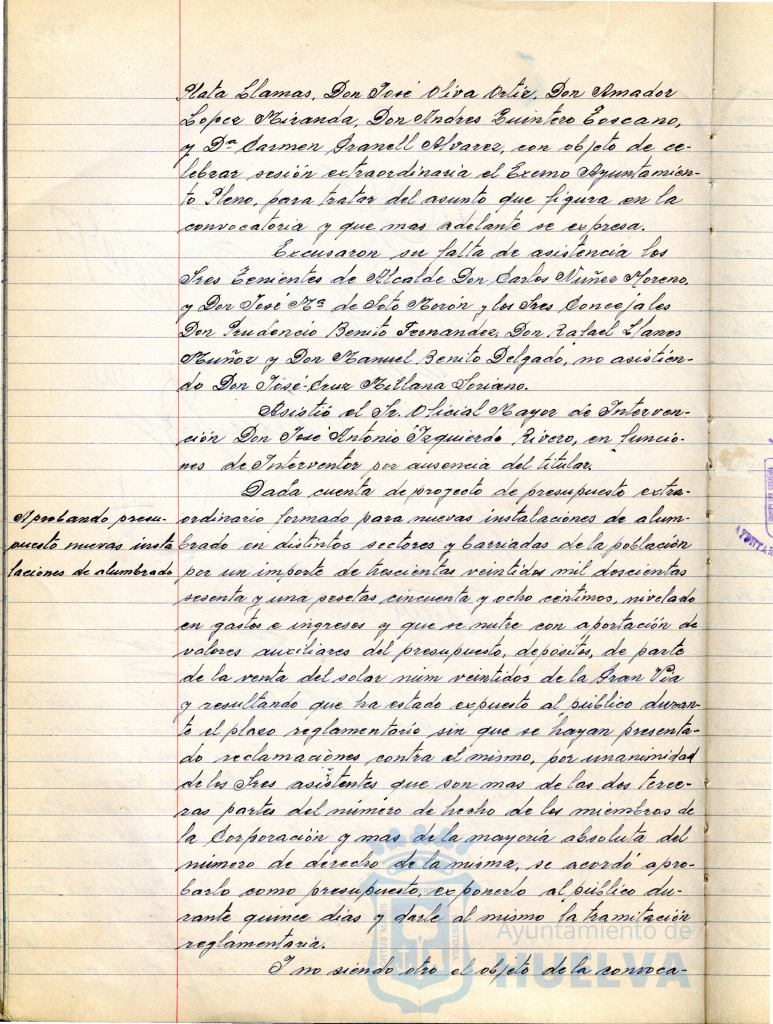 Plata Llamas, Don José Oliva Ortiz, Don Amador
Lopez Miranda, Don Andres Quintero Toscano,
y Dª Carmen Granell Alvarez, con objeto de ce-
lebrar sesión extraordinaria el Excmo Ayuntamien-
to Pleno, para tratar del asunto que figura en la
convocatoria y que mas adelante se expresa.
Excusaron su falta de asistencia los
Sres Tenientes de Alcalde Don Carlos Nuñez Moreno,
y Don José Mª de Soto Morón y los Sres Concejales
Don Prudencio Benito Fernandez, Don Rafael Llanes
Muñoz y Don Manuel Benito Delgado, no asistien-
do Don José-Cruz Millana Soriano.
Asistió el Sr. Oficial Mayor de Interven-
ción Don José Antonio Izquierdo Rivero, en funcio-
nes de Interventor por ausencia del titular.
Aprobando presu-
puesto nuevas insta
laciones de alumbrado
Dada cuenta de proyecto de presupuesto extra-
ordinario formado para nuevas instalaciones de alum-
brado en distintos sectores y barriadas de la población
por un importe de trescientas veintidos mil doscientas
sesenta y una pesetas cincuenta y ocho centimos, nivelado
en gastos e ingresos y que se nutre con aportación de
valores auxiliares del presupuesto, depósitos, de parte
de la venta del solar núm veintidos de la Gran Via
y resultando que ha estado expuesto al público duran-
te el plazo reglamentario sin que se hayan presenta-
do reclamaciones contra el mismo, por unanimidad
de los Sres asistentes que son mas de las dos terce-
ras partes del número de hecho de los miembros de
la Corporación y mas de la mayoría absoluta del
número de derecho de la misma, se acordó apro-
barlo como presupuesto, exponerlo al público du-
rante quince dias y darle al mismo la tramitación
reglamentaria.
Y no siendo otro el objeto de la convoca-
Ayuntamiento de
HUELVA